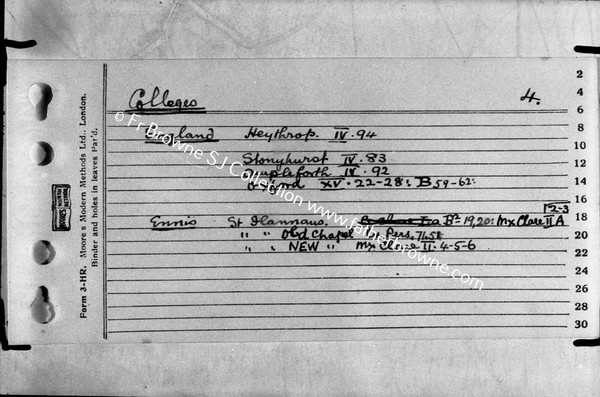 Colleges 4.
England Heythrop. IV. 94
Stonyhurst IV. 83
Ampleforth IV. 92
Oxford XV. 22-28: B 59-62:
12-3
Ennis St Flannans. 19,20: Mx Clare II A
" " Old Chapel Pers.
" " NEW " Mx Clare II. 4-5-6
© Fr Browne SJ Collection www.fatherbrowne.com
Form 3-HR. Moore's Modern Methods Ltd., London.
Binder and holes in leaves Pat'd.
2
4
6
8
10
12
14
16
18
20
22
24
26
28
30